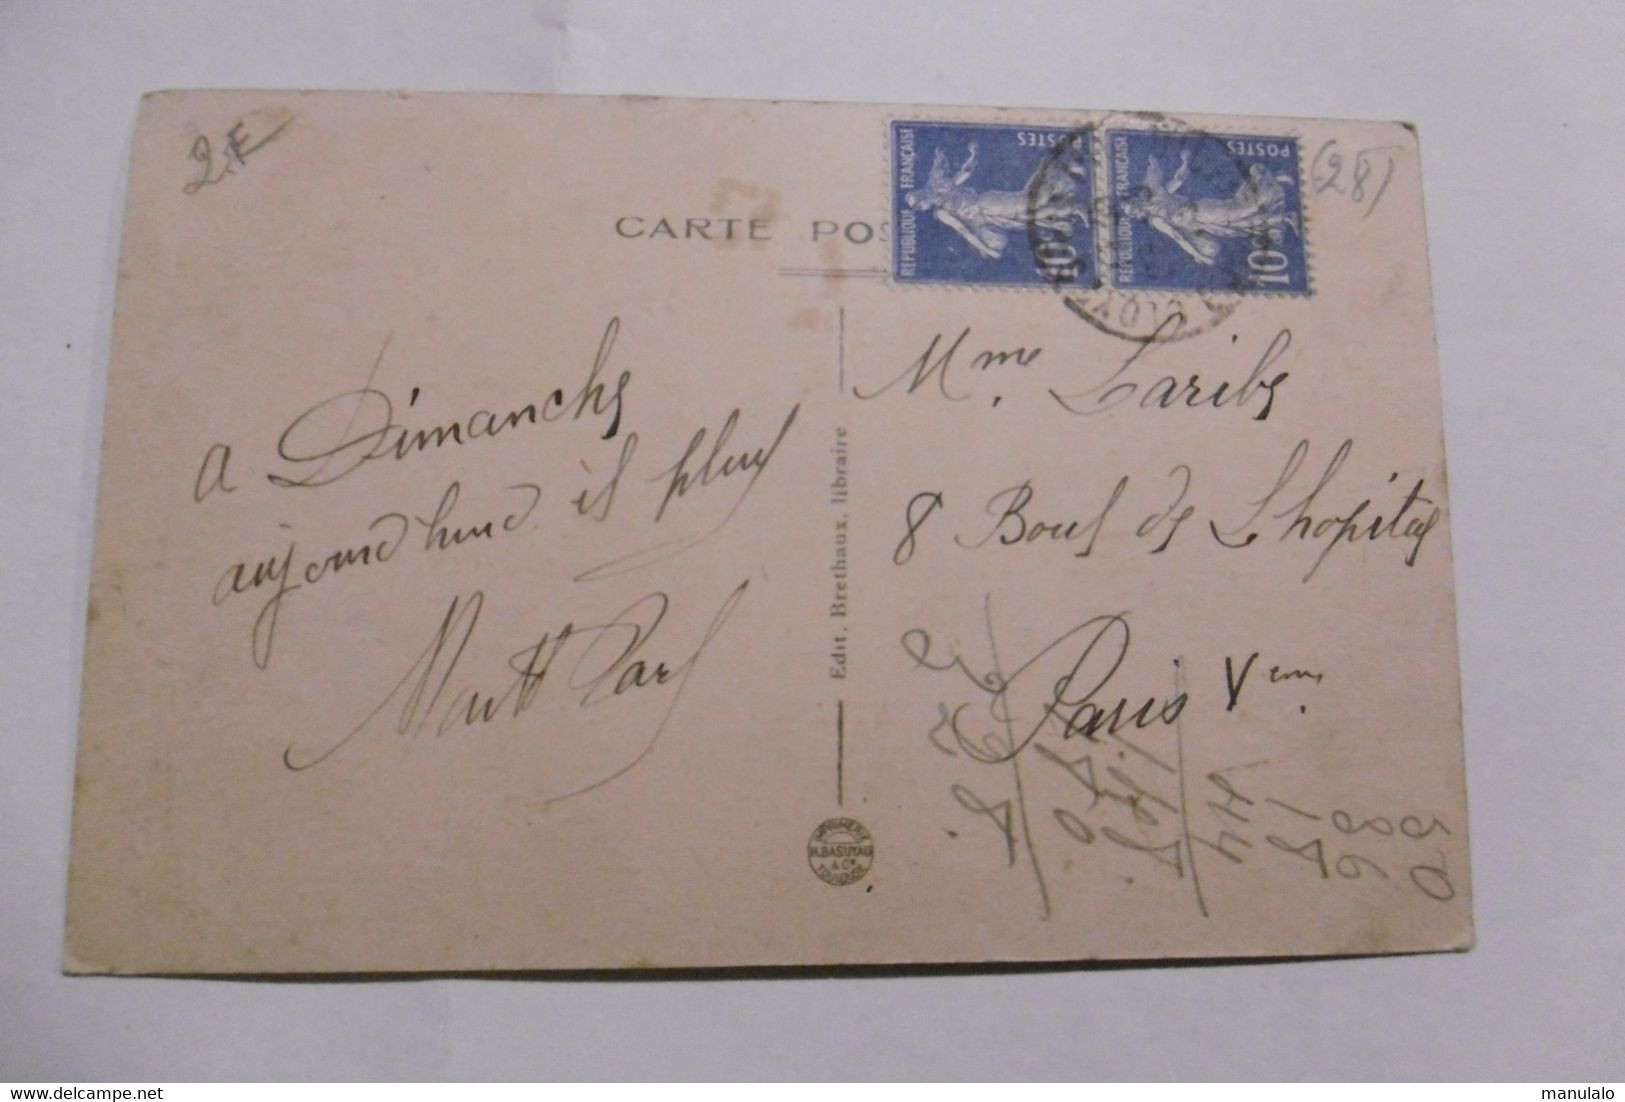 2F
(28)
CARTE POS
RÉPUBLIQUE FRANÇAISE
POSTES
10c
RÉPUBLIQUE FRANÇAISE
POSTES
10c
CLOYES
a Dimanche
aujourd'hui il pleut
Mme Laribe
8 Boul de L'hopital
Paris Vème
Edit. Brethaux, libraire
IMPRIMERIE
H. BASUYAU
& Cie
TOULOUSE
manulalo